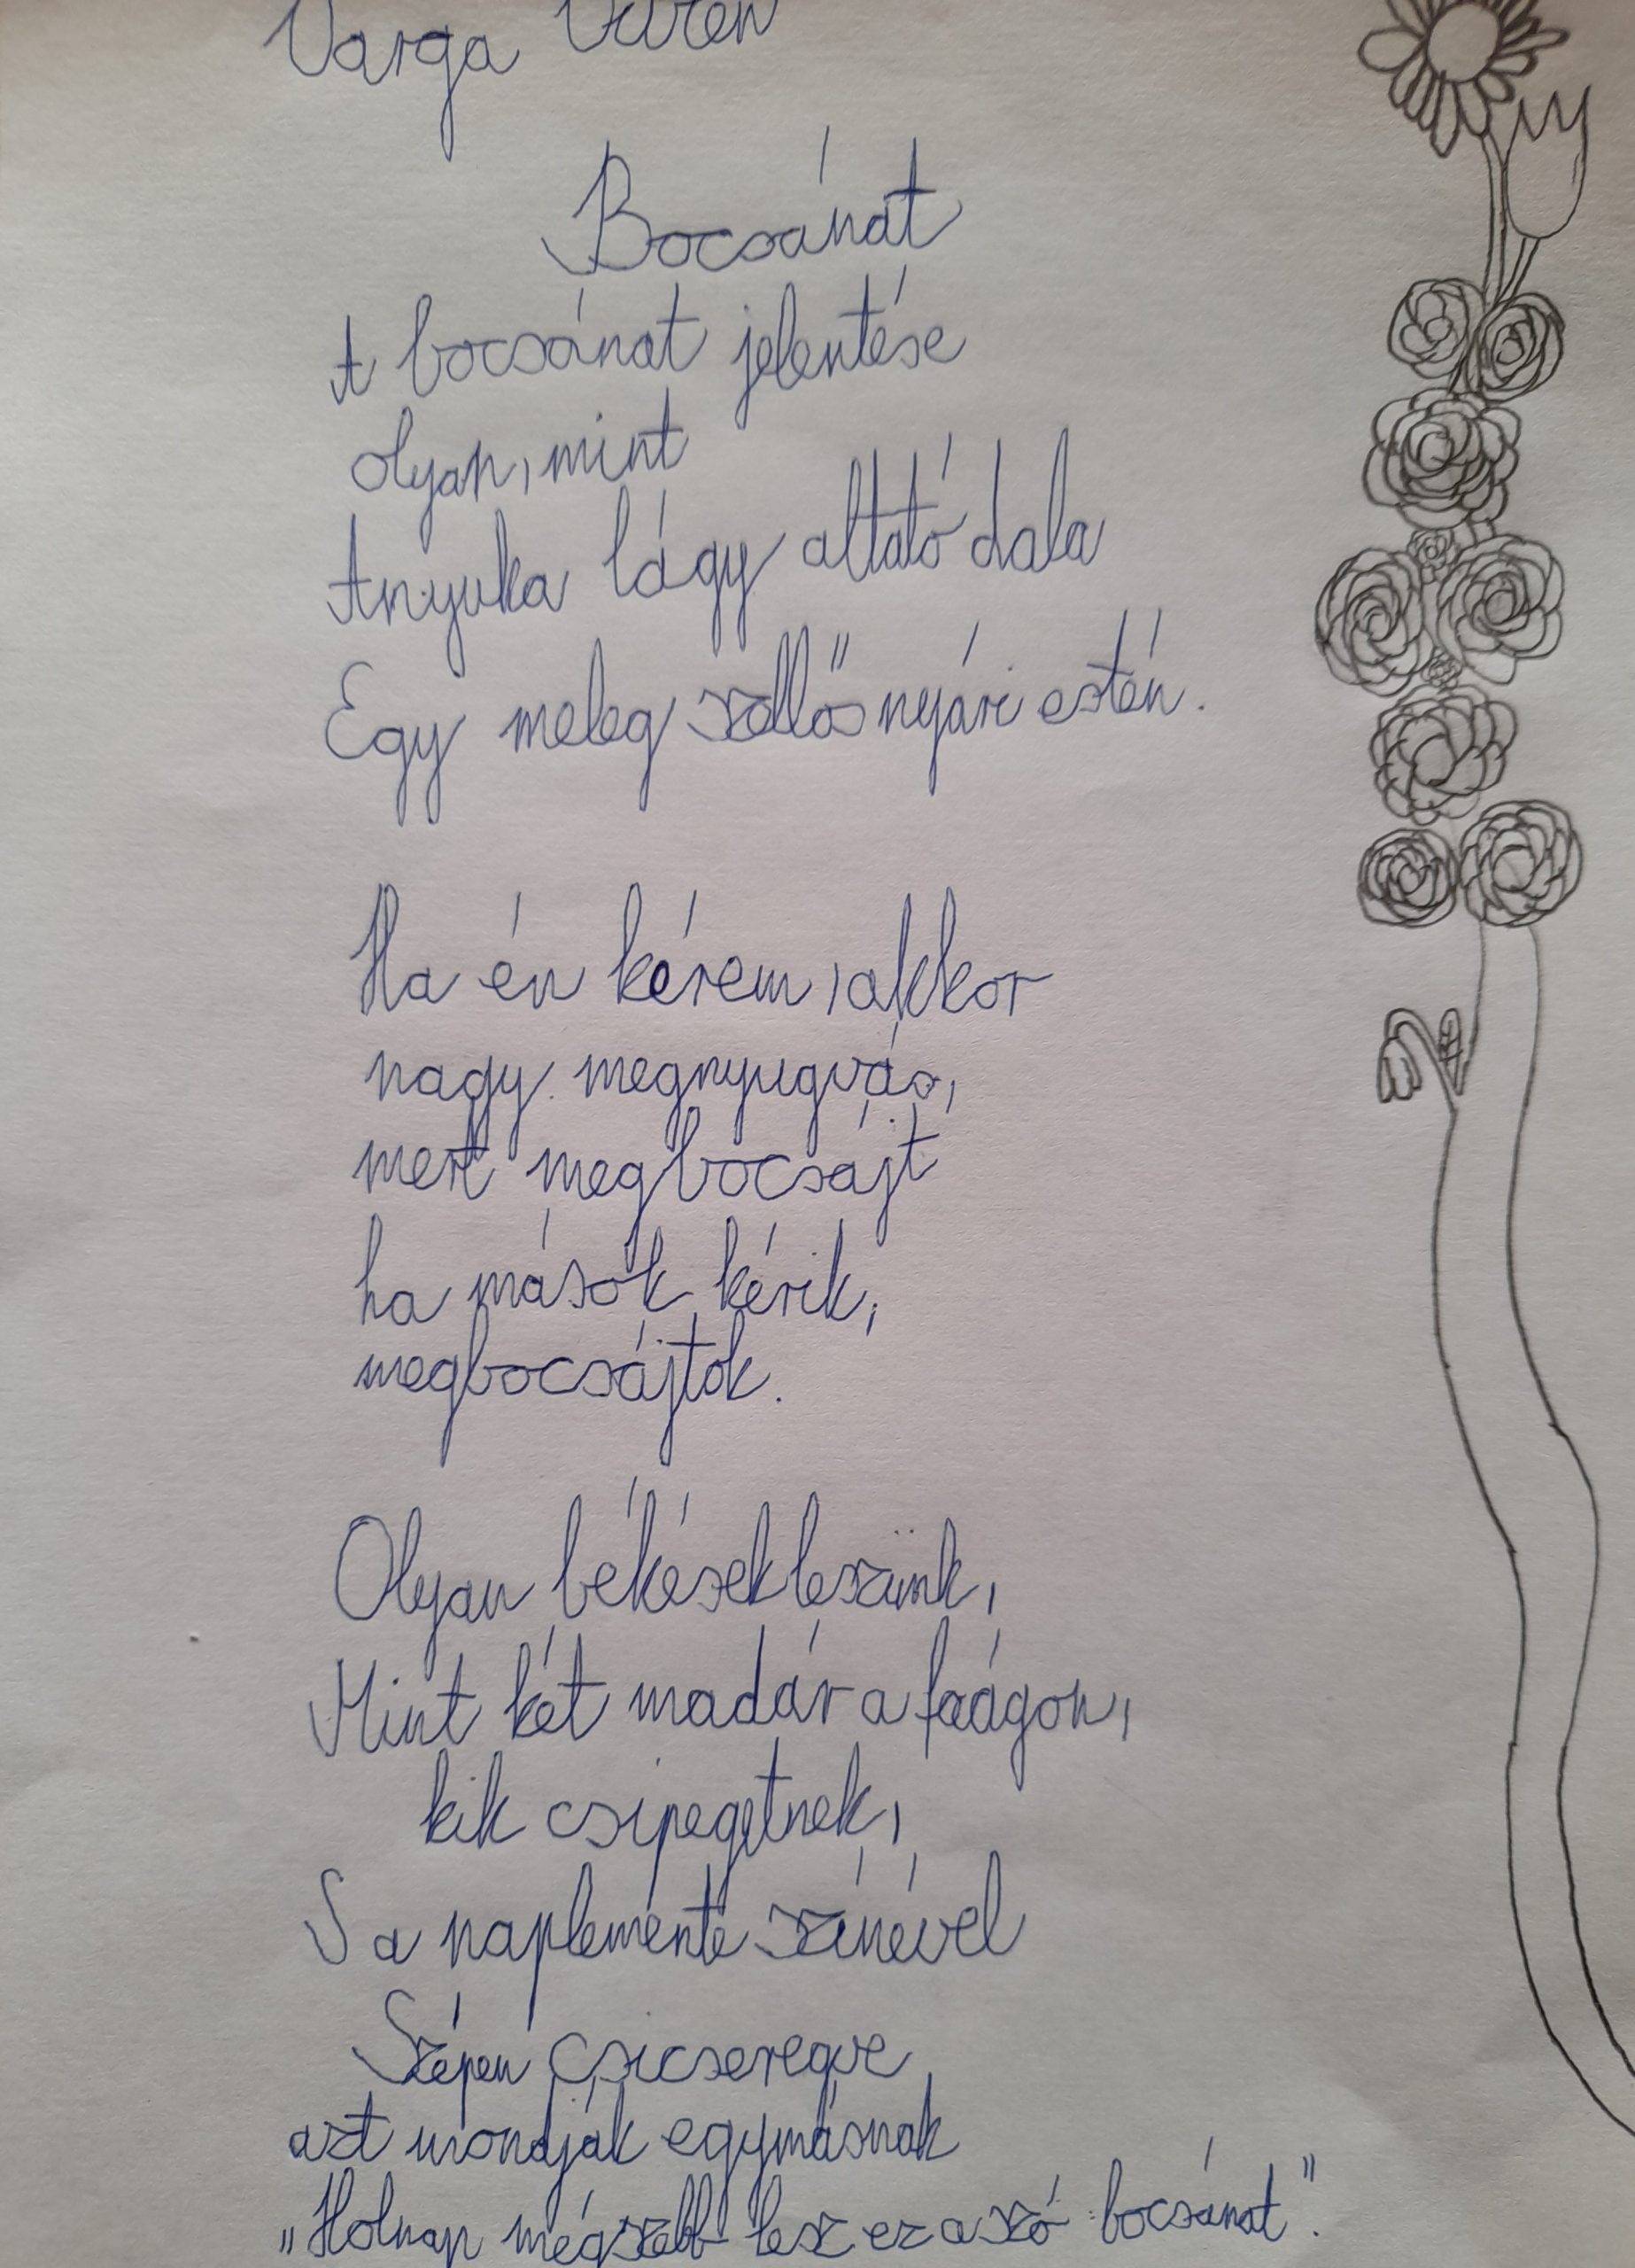 Varga
Bocsánat
A bocsánat jelentése
olyan, mint
Anyuka lágy altató dala
Egy meleg szellős nyári estén.
Ha én kérem, akkor
nagy megnyugvás,
mert megbocsájt
ha mások kérik,
megbocsájtok.
Olyan békések leszünk,
Mint két madár a faágon,
kik csipegetnek,
S a naplemente színével
Szépen csicseregve
azt mondják egymásnak
„Holnap mégszebb lesz ez a szó bocsánat".